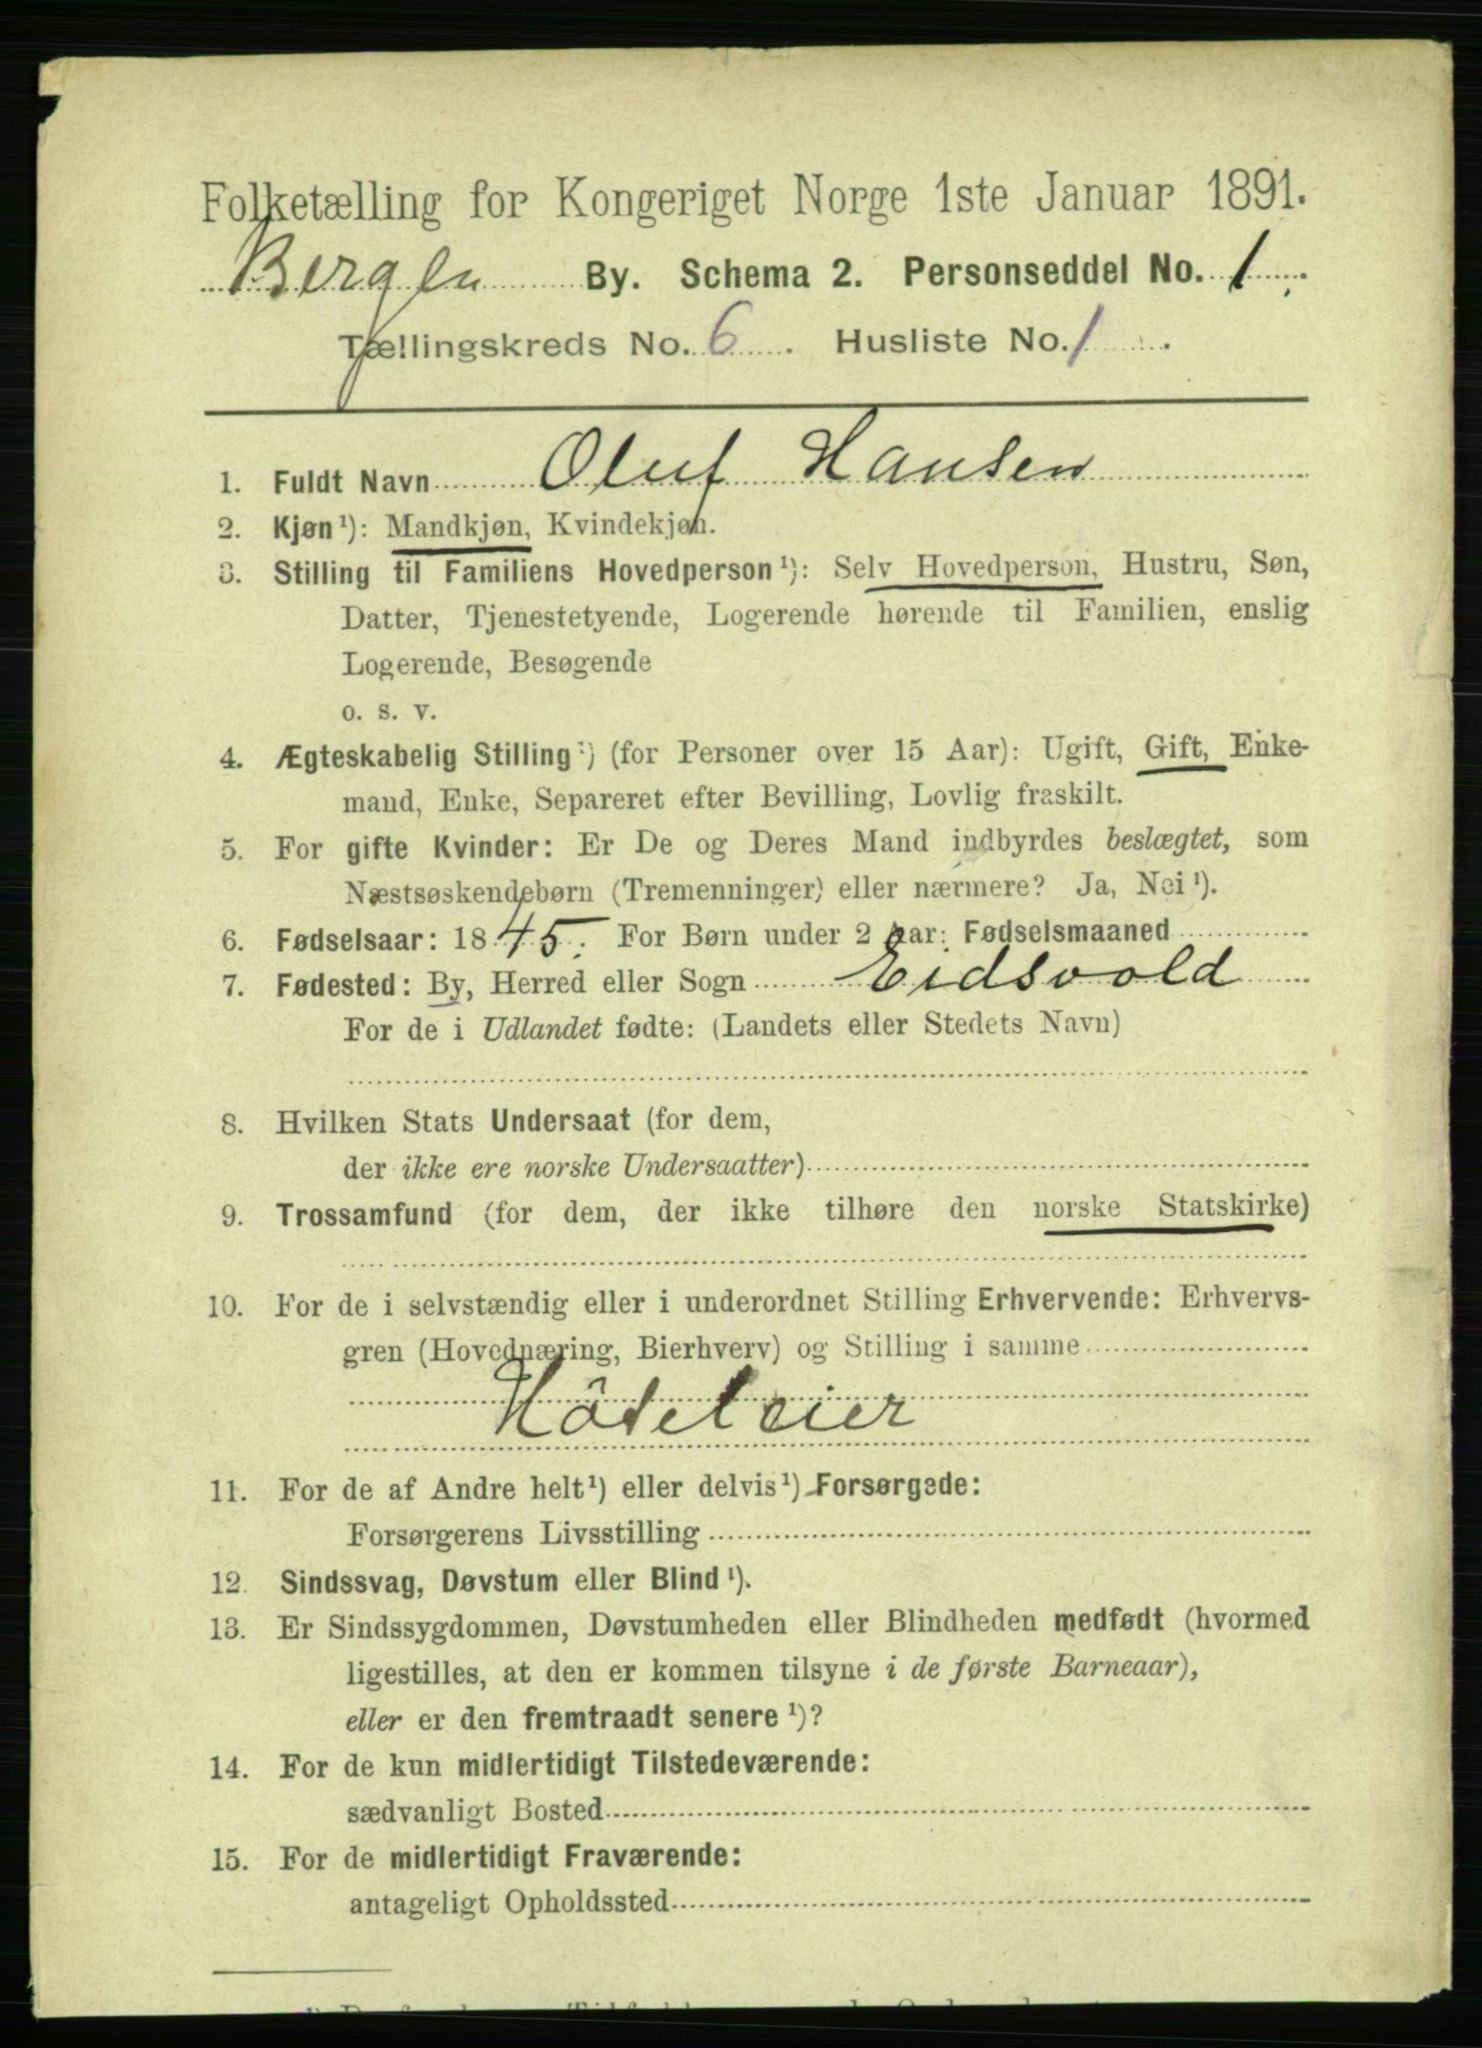 Folketælling for Kongeriget Norge 1ste Januar 1891.
Bergen By. Schema 2. Personseddel No. 1.
Tællingskreds No. 6. Husliste No. 1.
1. Fuldt Navn Oluf Hansen
2. Kjøn¹): Mandkjøn, Kvindekjøn.
3. Stilling til Familiens Hovedperson¹): Selv Hovedperson, Hustru, Søn,
Datter, Tjenestetyende, Logerende hørende til Familien, enslig
Logerende, Besøgende
o. s. v.
4. Ægteskabelig Stilling¹) (for Personer over 15 Aar): Ugift, Gift, Enke-
mand, Enke, Separeret efter Bevilling, Lovlig fraskilt.
5. For gifte Kvinder: Er De og Deres Mand indbyrdes beslægtet, som
Næstsøskendebørn (Tremenninger) eller nærmere? Ja, Nei¹).
6. Fødselsaar: 1845. For Børn under 2 Aar: Fødselsmaaned
7. Fødested: By, Herred eller Sogn Eidsvold
For de i Udlandet fødte: (Landets eller Stedets Navn)
8. Hvilken Stats Undersaat (for dem,
der ikke ere norske Undersaatter)
9. Trossamfund (for dem, der ikke tilhøre den norske Statskirke)
10. For de i selvstændig eller i underordnet Stilling Erhvervende: Erhvervs-
gren (Hovednæring, Bierhverv) og Stilling i samme
Hôteleier
11. For de af Andre helt¹) eller delvis¹) Forsørgede:
Forsørgerens Livsstilling
12. Sindssvag, Døvstum eller Blind¹).
13. Er Sindssygdommen, Døvstumheden eller Blindheden medfødt (hvormed
ligestilles, at den er kommen tilsyne i de første Barneaar),
eller er den fremtraadt senere¹)?
14. For de kun midlertidigt Tilstedeværende:
sædvanligt Bosted
15. For de midlertidigt Fraværende:
antageligt Opholdssted